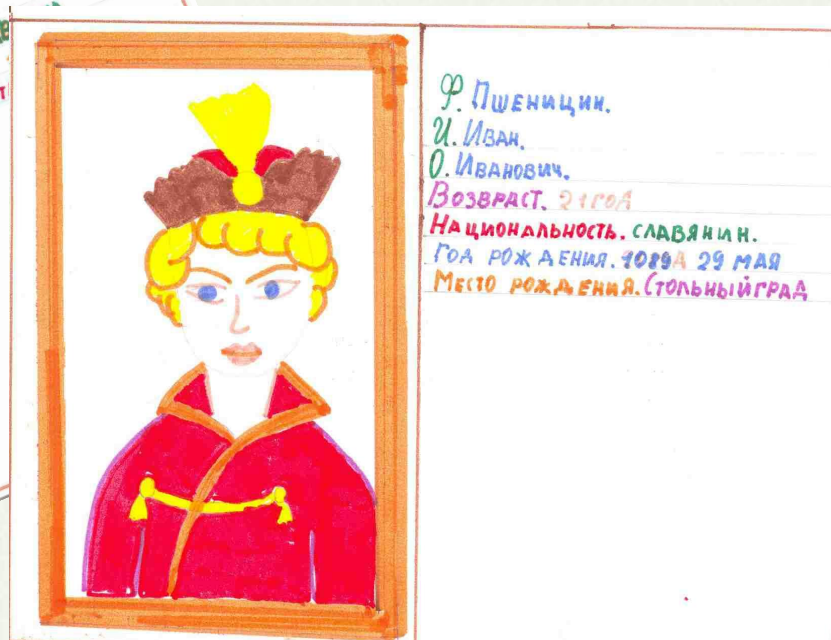 Ф. Пшеницин.
И. Иван.
О. Иванович.
Возвраст. 21 год
Национальность. славянин.
Год рождения. 1089д 29 мая
Место рождения. Стольныйград